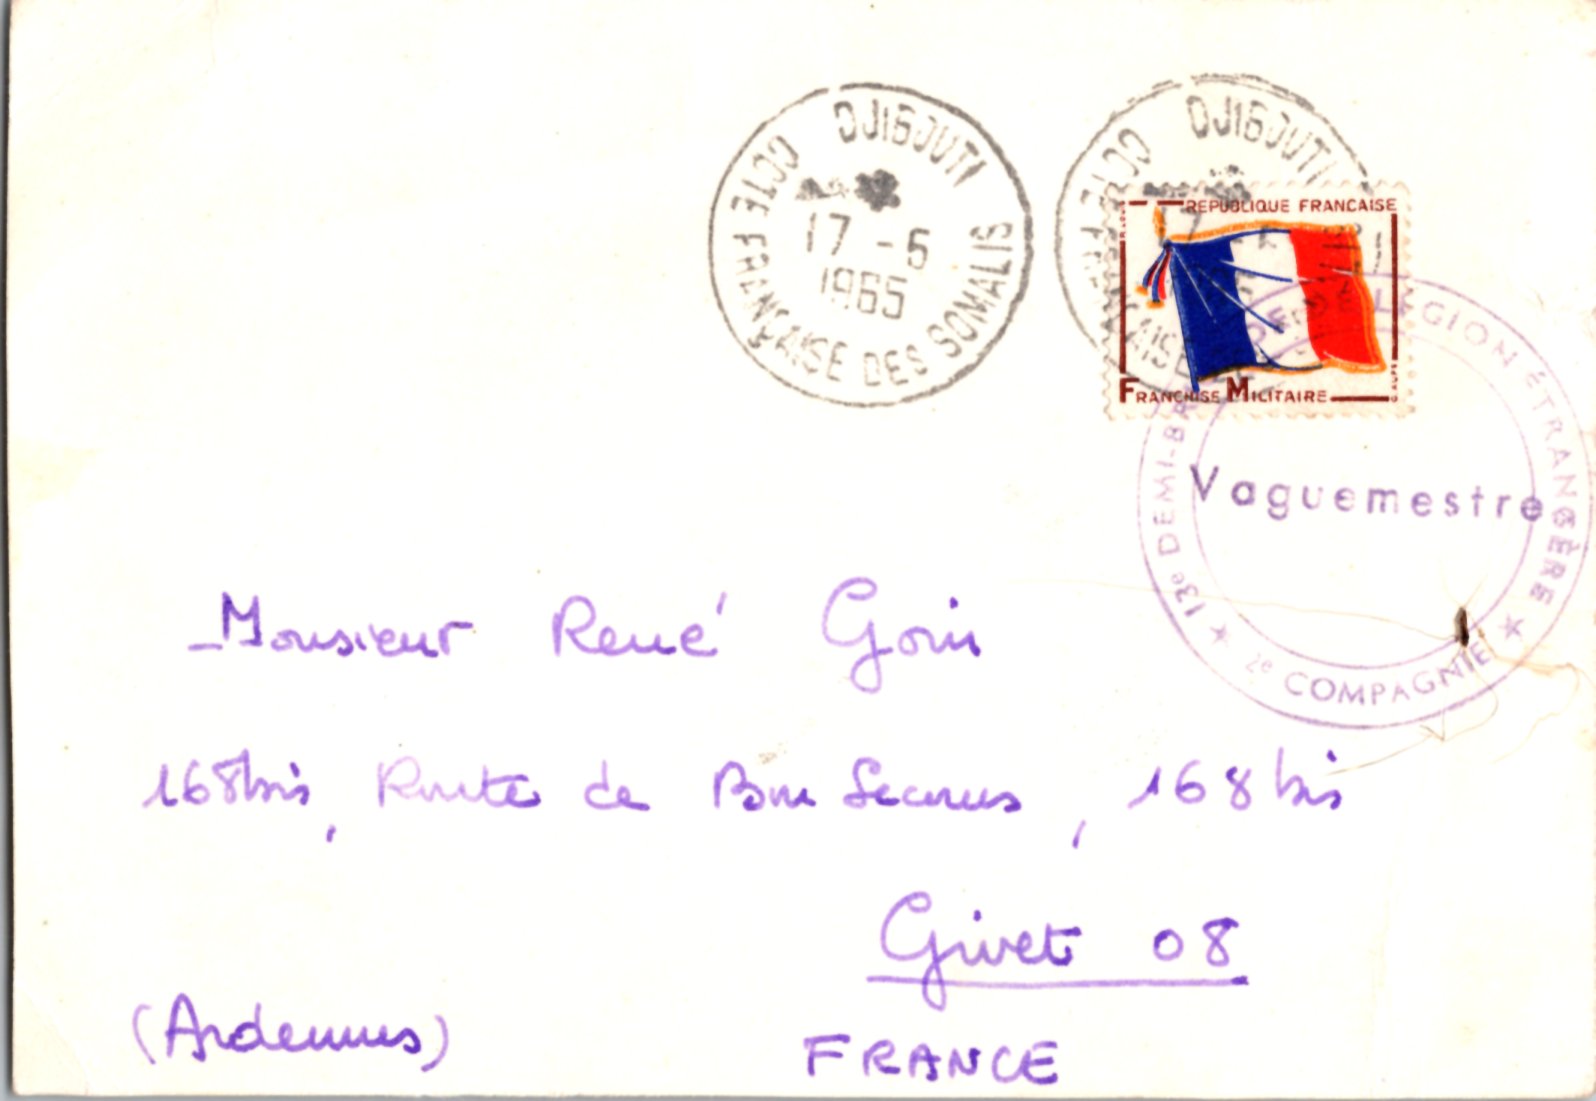 DJIBOUTI
COTE FRANÇAISE DES SOMALIS
17 -5
1965
DJIBOUTI
REPUBLIQUE FRANCAISE
FRANCHISE MILITAIRE
13e DEMI-BR DE LÉGION ÉTRANGÈRE
Vaguemestre
★ 2e COMPAGNIE ★
Monsieur René Goin
168bis, Route de Bon Secours, 168 bis
Givet 08
(Ardennes)
FRANCE